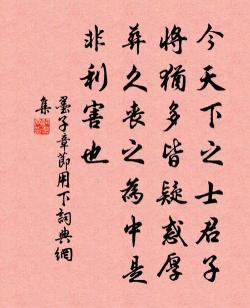 今天下之士君子
將猶多皆疑惑厚
葬久喪之為中是
非利害也
墨子章節用下詞典網
集